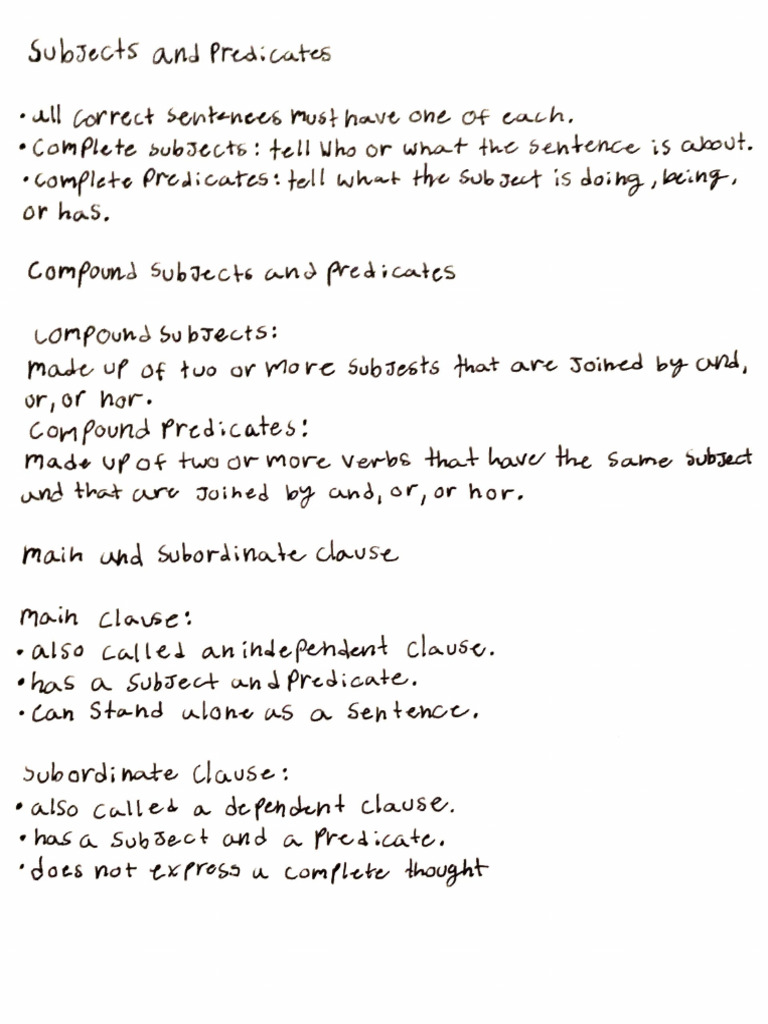 Subjects and Predicates
• all correct sentences must have one of each.
• Complete subjects: tell who or what the sentence is about.
• Complete Predicates: tell what the subject is doing, being,
or has.
Compound subjects and predicates
Compound subjects:
made up of two or more subjests that are joined by and,
or, or nor.
Compound predicates:
made up of two or more verbs that have the same subject
and that are joined by and, or, or nor.
main and subordinate clause
main clause:
• also called an independent clause.
• has a subject and predicate.
• can stand alone as a sentence.
subordinate clause:
• also called a dependent clause.
• has a subject and a predicate.
• does not express a complete thought